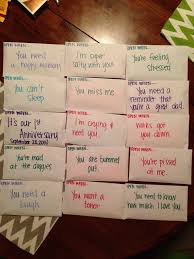 OPEN WHEN...
You need
a happy moment
OPEN WHEN...
I'm super
salty with you!
OPEN WHEN...
You're feeling
stressed
OPEN WHEN...
You can't
sleep
OPEN WHEN...
You miss me
OPEN WHEN...
You need a
reminder that
you're a great dad
OPEN WHEN...
It's our 1st
Anniversary
OPEN WHEN...
I'm being a
need you
OPEN WHEN...
got you
down
OPEN WHEN...
You're mad
at the doggies
OPEN WHEN...
You are bummed
out
OPEN WHEN...
You're pissed
at me
OPEN WHEN...
You need a
laugh
OPEN WHEN...
You want a
OPEN WHEN...
You need to know
how much I love you